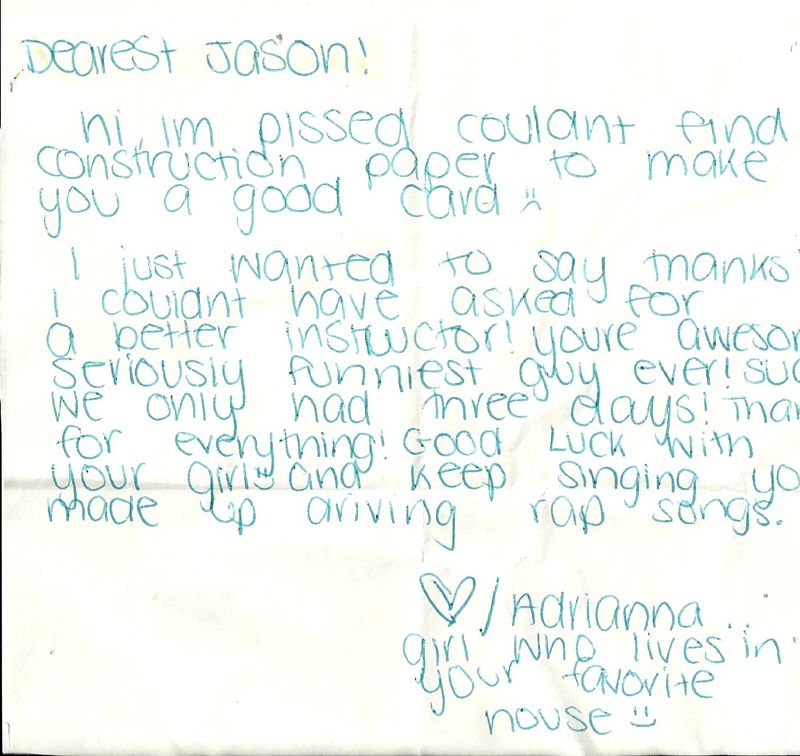 Dearest Jason!
hi, im pissed couldnt find
construction paper to make
you a good card :(
I just wanted to say thanks!
i couldnt have asked for
a better instructor! youre awesom
seriously funniest guy ever! suc
we only had three days! Than
for everything! Good Luck with
your girl :) and keep singing yo
made up driving rap songs.
♡/Adrianna ..
girl who lives in
your favorite
house :)